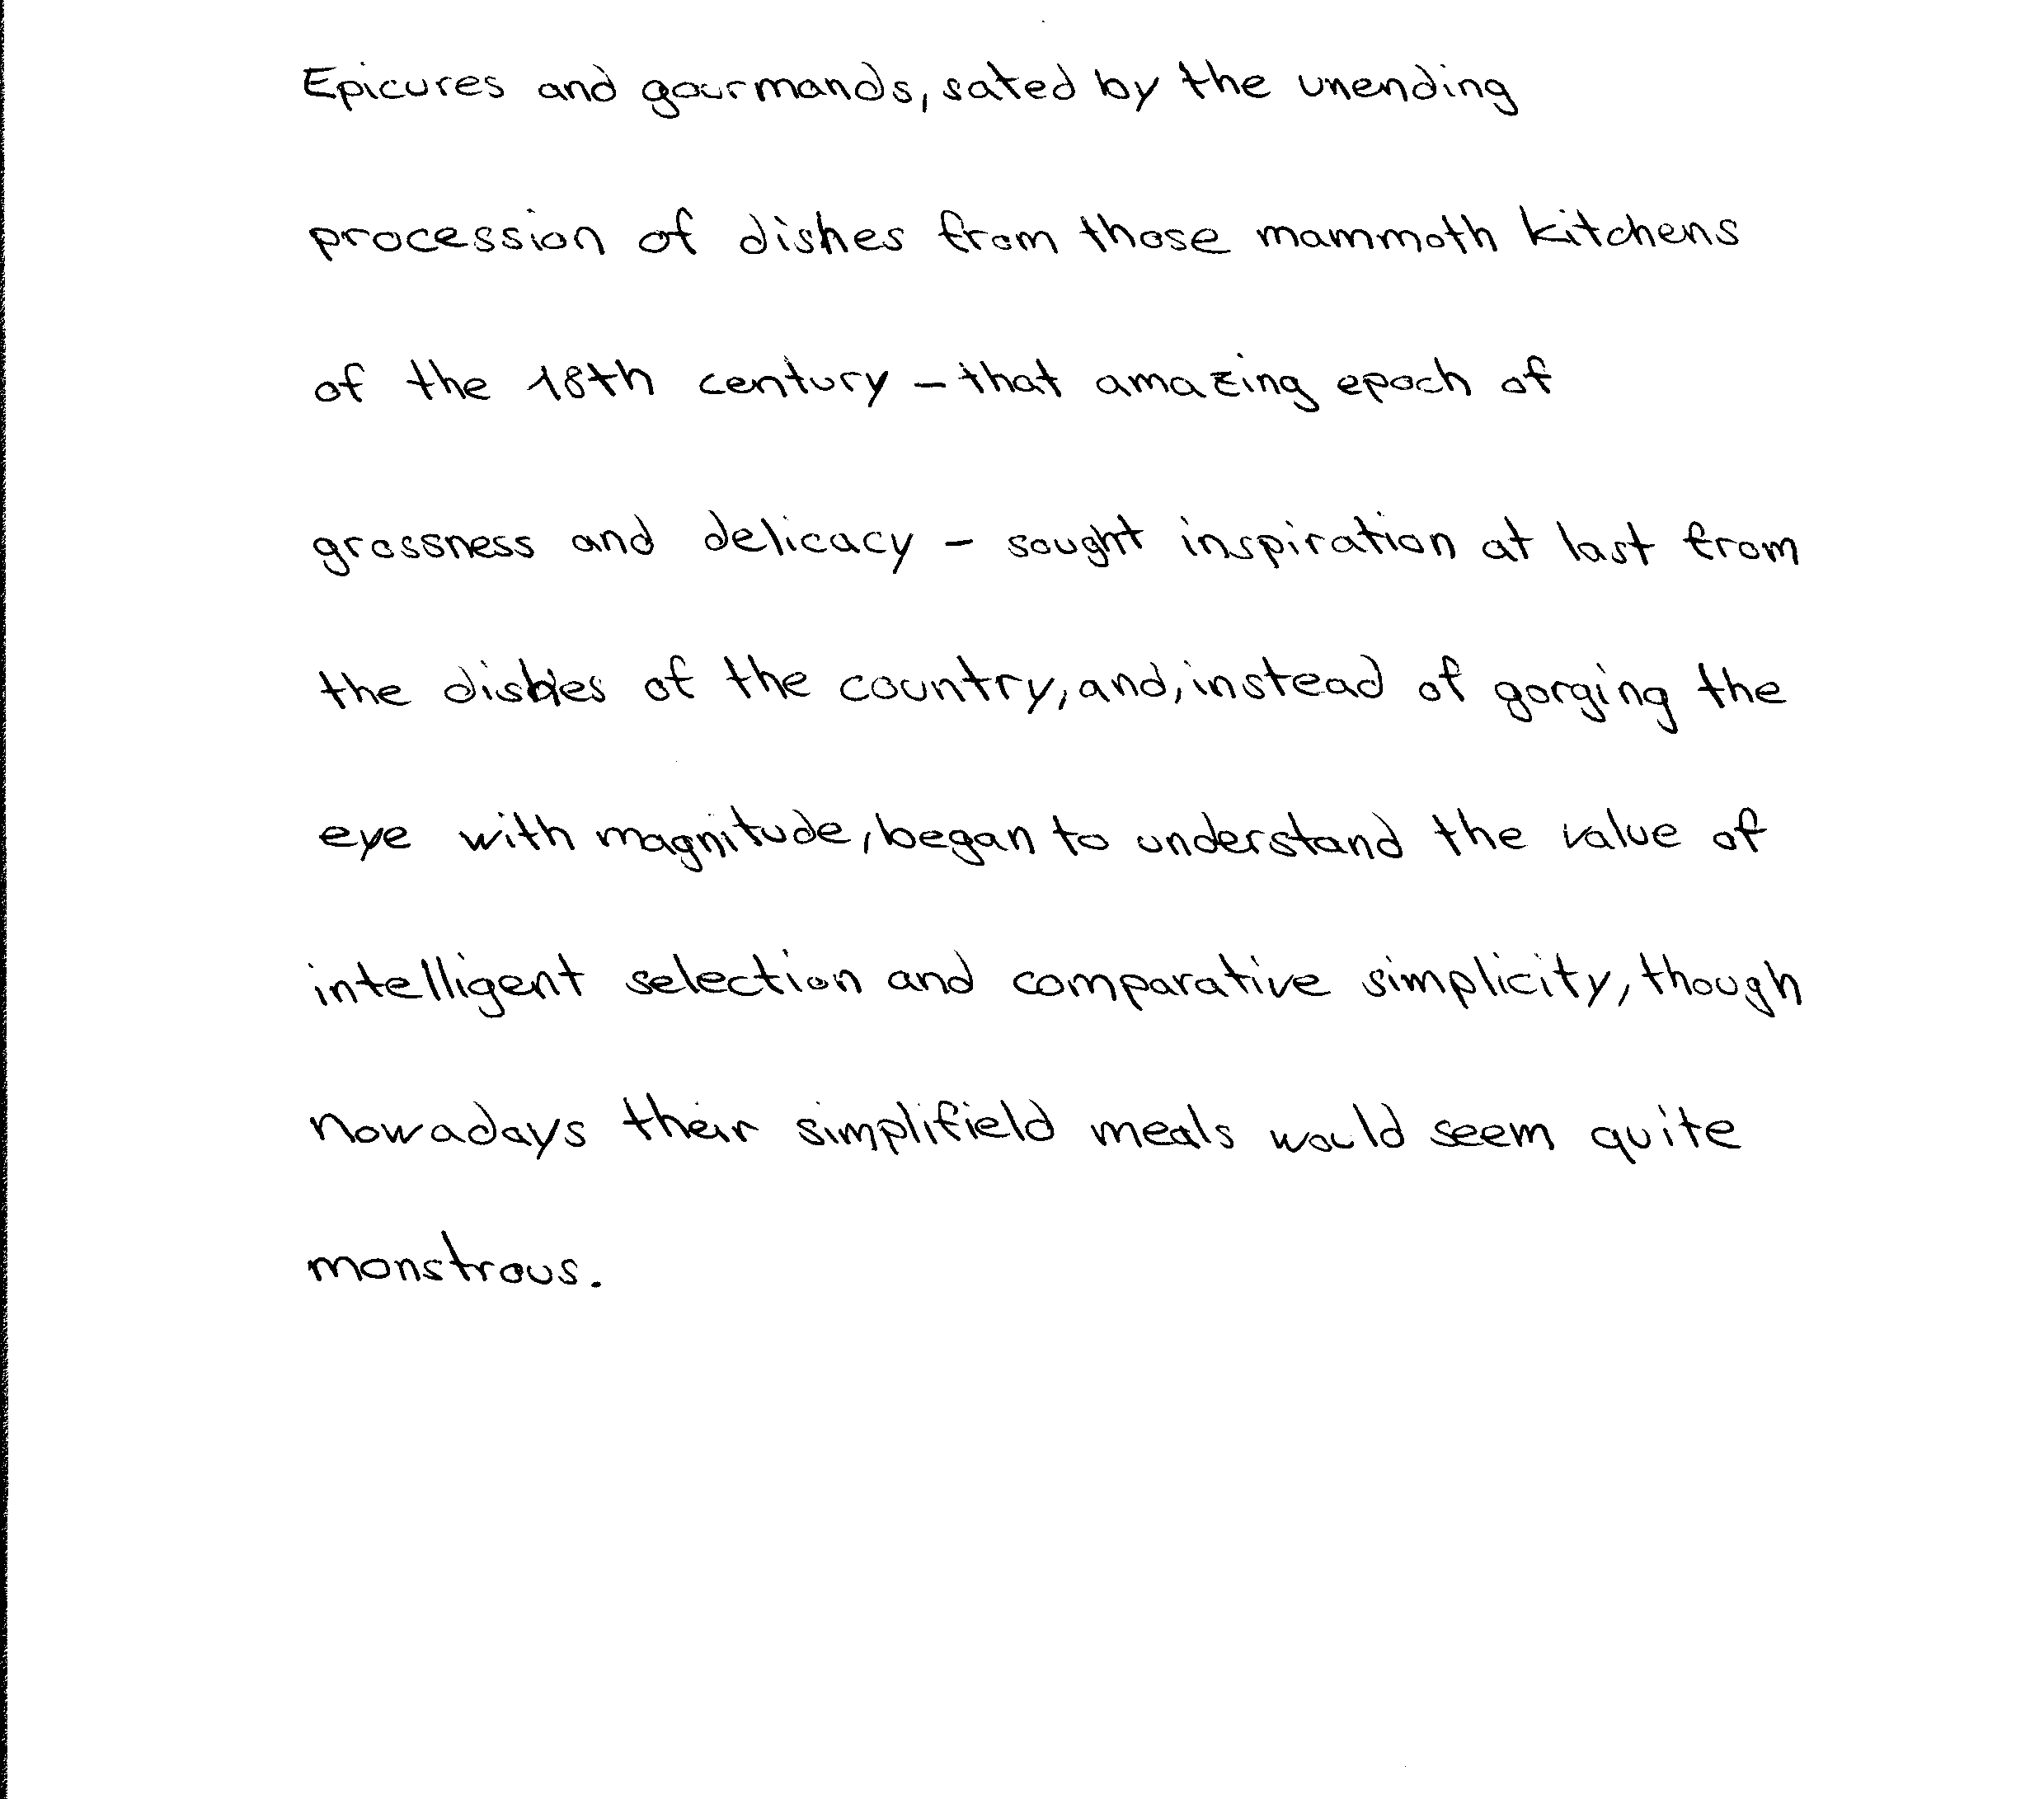 Epicures and gourmands, sated by the unending
procession of dishes from those mammoth kitchens
of the 18th century - that amazing epoch of
grossness and delicacy - sought inspiration at last from
the dishes of the country, and, instead of gorging the
eye with magnitude, began to understand the value of
intelligent selection and comparative simplicity, though
nowadays their simplifield meals would seem quite
monstrous.